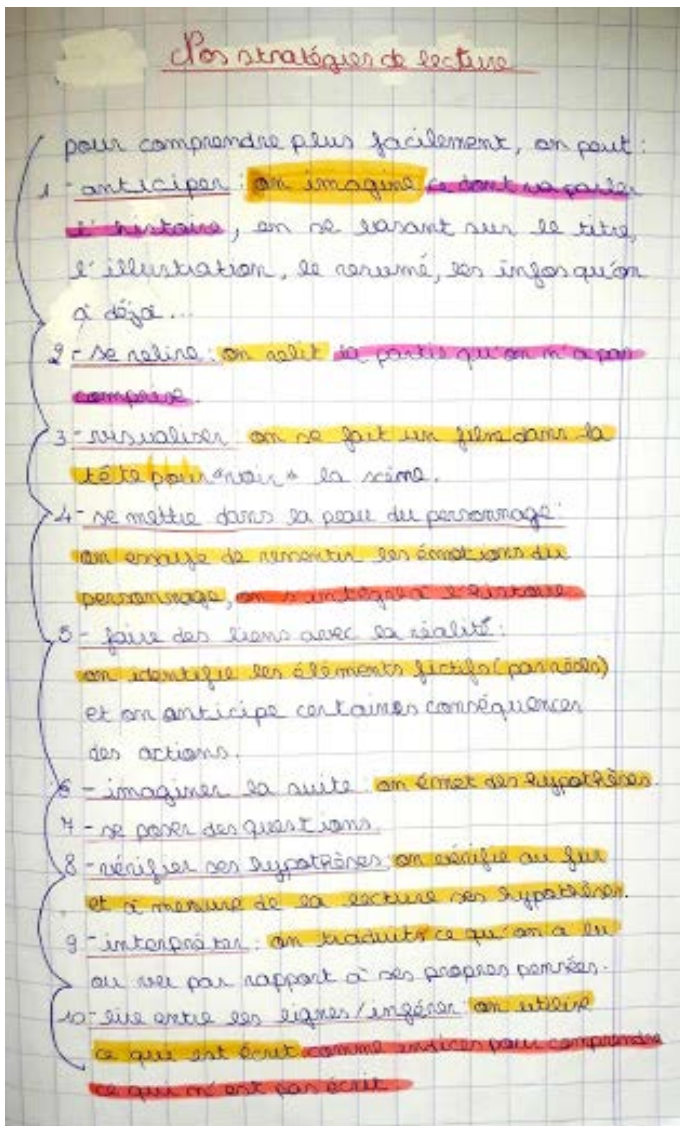 Nos stratégies de lecture
pour comprendre plus facilement, on peut :
1 - anticiper : on imagine ce dont va parler
l'histoire, en se basant sur le titre,
l'illustration, le resumé, les infos qu'on
a déjà...
2 - se relire : on relit la partie qu'on n'a pas
comprise.
3 - visualiser : on se fait un film dans la
tête pour "voir" la scène.
4 - se mettre dans la peau du personnage :
on essaye de ressentir les émotions du
personnage, on s'intègre à l'histoire
5 - faire des liens avec la réalité :
on identifie les éléments fictifs (pas réels)
et on anticipe certaines conséquences
des actions.
6 - imaginer la suite : on émet des hypothèses.
7 - se poser des questions.
8 - vérifier ses hypothèses : on vérifie au fur
et à mesure de la lecture ses hypothèses.
9 - interpréter : on traduit ce qu'on a lu
ou vu par rapport à ses propres pensées.
10 - lire entre les lignes / inférer : on utilise
ce qui est écrit comme indices pour comprendre
ce qui n'est pas écrit